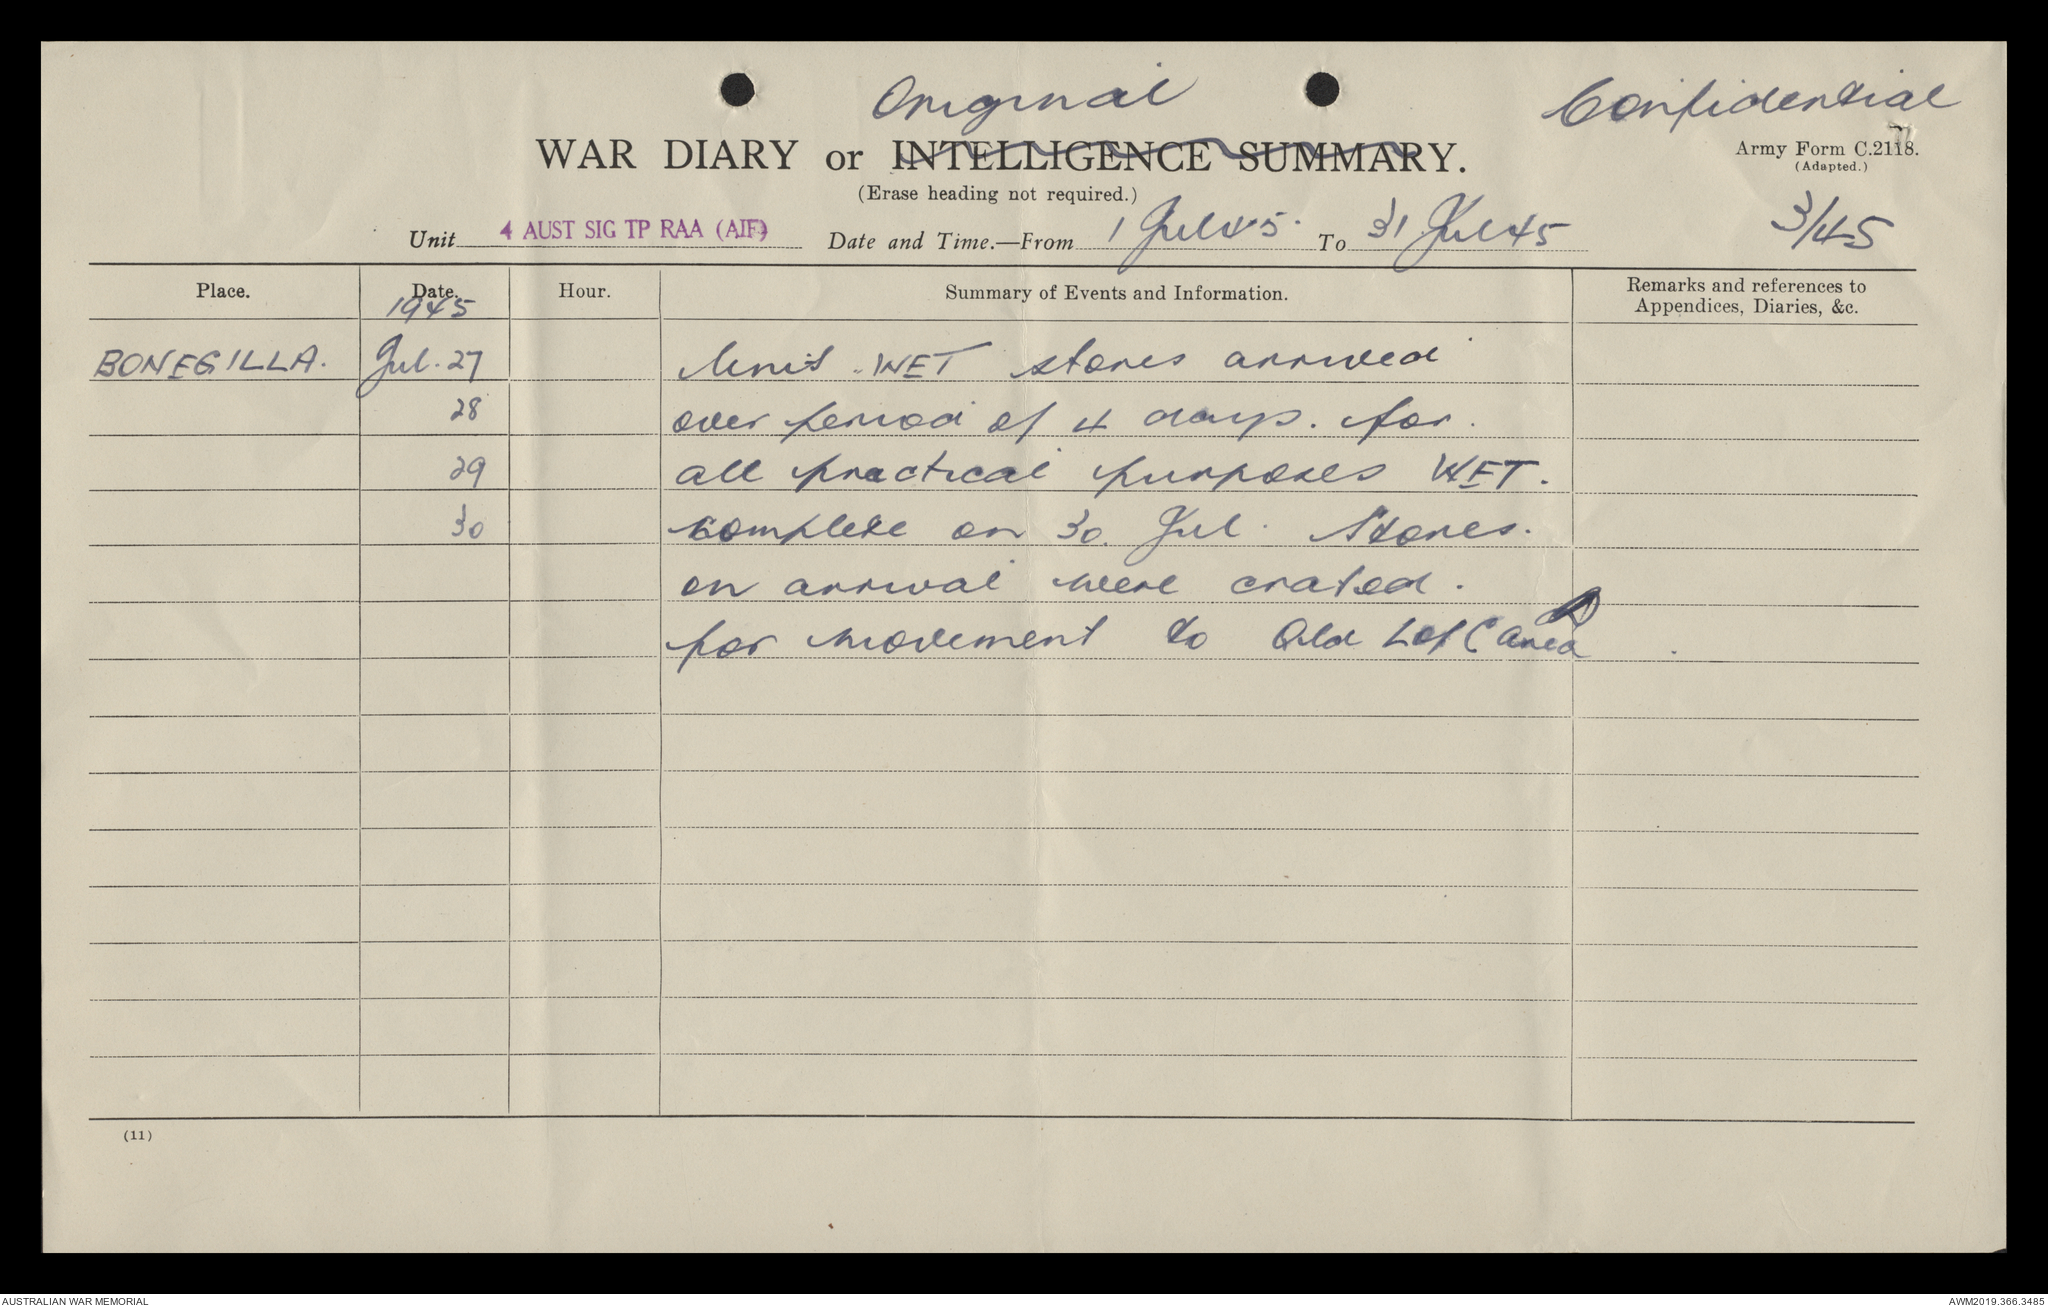 Original
Confidential
WAR DIARY or INTELLIGENCE SUMMARY.
Army Form C.2118.
(Adapted.)
(Erase heading not required.)
3/45
Unit 4 AUST SIG TP RAA (AIF) Date and Time.—From 1 Jul 45. To 31 Jul 45
Place. Date. Hour. Summary of Events and Information. Remarks and references to
Appendices, Diaries, &c.
1945
BONEGILLA. Jul. 27 Unit WET stores arrived
28 over period of 4 days. for
29 all practical purposes WET.
30 complete on 30 Jul. Stores.
on arrival were crated.
for movement to Qld L of C area
(11)
AUSTRALIAN WAR MEMORIAL
AWM2019.366.3485